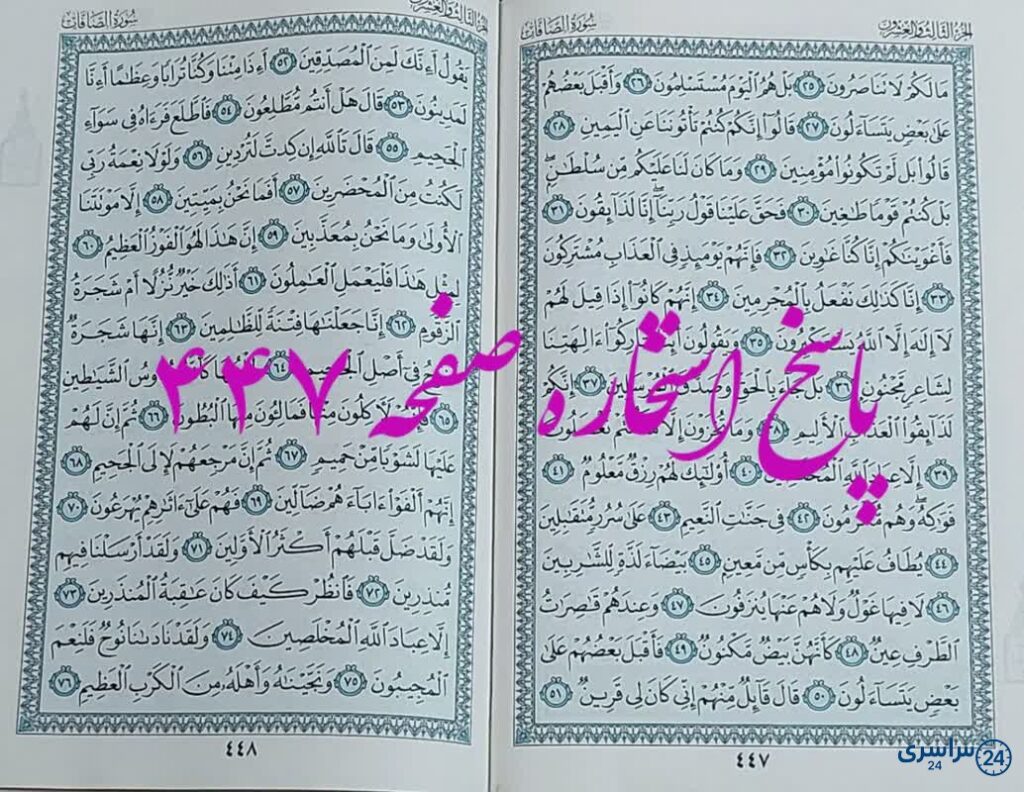 الجزء الثالث والعشرون
سورة الصافات
مَا لَكُمْ لَا تَنَاصَرُونَ ٢٥ بَلْ هُمُ الْيَوْمَ مُسْتَسْلِمُونَ ٢٦ وَأَقْبَلَ بَعْضُهُمْ
عَلَىٰ بَعْضٍ يَتَسَاءَلُونَ ٢٧ قَالُوا إِنَّكُمْ كُنتُمْ تَأْتُونَنَا عَنِ الْيَمِينِ ٢٨
قَالُوا بَل لَّمْ تَكُونُوا مُؤْمِنِينَ ٢٩ وَمَا كَانَ لَنَا عَلَيْكُم مِّن سُلْطَانٍ ۖ
بَلْ كُنتُمْ قَوْمًا طَاغِينَ ٣٠ فَحَقَّ عَلَيْنَا قَوْلُ رَبِّنَا ۖ إِنَّا لَذَائِقُونَ ٣١
فَأَغْوَيْنَاكُمْ إِنَّا كُنَّا غَاوِينَ ٣٢ فَإِنَّهُمْ يَوْمَئِذٍ فِي الْعَذَابِ مُشْتَرِكُونَ
٣٣ إِنَّا كَذَٰلِكَ نَفْعَلُ بِالْمُجْرِمِينَ ٣٤ إِنَّهُمْ كَانُوا إِذَا قِيلَ لَهُمْ
لَا إِلَٰهَ إِلَّا اللَّهُ يَسْتَكْبِرُونَ ٣٥ وَيَقُولُونَ ءَالِهَتِنَا
لِشَاعِرٍ مَّجْنُونٍ ٣٦ بَلْ جَاءَ بِالْحَقِّ وَصَدَّقَ الْمُرْسَلِينَ ٣٧ إِنَّكُمْ
لَذَائِقُوا الْعَذَابِ الْأَلِيمِ ٣٨ وَمَا تُجْزَوْنَ إِلَّا مَا كُنتُمْ تَعْمَلُونَ
٣٩ إِلَّا عِبَادَ اللَّهِ الْمُخْلَصِينَ ٤٠ أُولَٰئِكَ لَهُمْ رِزْقٌ مَّعْلُومٌ ٤١
فَوَاكِهُ ۖ وَهُم مُّكْرَمُونَ ٤٢ فِي جَنَّاتِ النَّعِيمِ ٤٣ عَلَىٰ سُرُرٍ مُّتَقَابِلِينَ
٤٤ يُطَافُ عَلَيْهِم بِكَأْسٍ مِّن مَّعِينٍ ٤٥ بَيْضَاءَ لَذَّةٍ لِّلشَّارِبِينَ
٤٦ لَا فِيهَا غَوْلٌ وَلَا هُمْ عَنْهَا يُنزَفُونَ ٤٧ وَعِندَهُمْ قَاصِرَاتُ
الطَّرْفِ عِينٌ ٤٨ كَأَنَّهُنَّ بَيْضٌ مَّكْنُونٌ ٤٩ فَأَقْبَلَ بَعْضُهُمْ عَلَىٰ
بَعْضٍ يَتَسَاءَلُونَ ٥٠ قَالَ قَائِلٌ مِّنْهُمْ إِنِّي كَانَ لِي قَرِينٌ ٥١
٤٤٧
الجزء الثالث والعشرون
سورة الصافات
يَقُولُ أَءِنَّكَ لَمِنَ الْمُصَدِّقِينَ ٥٢ أَءِذَا مِتْنَا وَكُنَّا تُرَابًا وَعِظَامًا أَءِنَّا
لَمَدِينُونَ ٥٣ قَالَ هَلْ أَنتُم مُّطَّلِعُونَ ٥٤ فَاطَّلَعَ فَرَآهُ فِي سَوَاءِ
الْجَحِيمِ ٥٥ قَالَ تَاللَّهِ إِن كِدتَّ لَتُرْدِينِ ٥٦ وَلَوْلَا نِعْمَةُ رَبِّي
لَكُنتُ مِنَ الْمُحْضَرِينَ ٥٧ أَفَمَا نَحْنُ بِمَيِّتِينَ ٥٨ إِلَّا مَوْتَتَنَا
الْأُولَىٰ وَمَا نَحْنُ بِمُعَذَّبِينَ ٥٩ إِنَّ هَٰذَا لَهُوَ الْفَوْزُ الْعَظِيمُ ٦٠
لِمِثْلِ هَٰذَا فَلْيَعْمَلِ الْعَامِلُونَ ٦١ أَذَٰلِكَ خَيْرٌ نُّزُلًا أَمْ شَجَرَةُ
الزَّقُّومِ ٦٢ إِنَّا جَعَلْنَاهَا فِتْنَةً لِّلظَّالِمِينَ ٦٣ إِنَّهَا شَجَرَةٌ
تَخْرُجُ فِي أَصْلِ الْجَحِيمِ ٦٤ طَلْعُهَا كَأَنَّهُ رُءُوسُ الشَّيَاطِينِ
٦٥ فَإِنَّهُمْ لَآكِلُونَ مِنْهَا فَمَالِئُونَ مِنْهَا الْبُطُونَ ٦٦ ثُمَّ إِنَّ لَهُمْ
عَلَيْهَا لَشَوْبًا مِّنْ حَمِيمٍ ٦٧ ثُمَّ إِنَّ مَرْجِعَهُمْ لَإِلَى الْجَحِيمِ ٦٨
إِنَّهُمْ أَلْفَوْا آبَاءَهُمْ ضَالِّينَ ٦٩ فَهُمْ عَلَىٰ آثَارِهِمْ يُهْرَعُونَ ٧٠
وَلَقَدْ ضَلَّ قَبْلَهُمْ أَكْثَرُ الْأَوَّلِينَ ٧١ وَلَقَدْ أَرْسَلْنَا فِيهِم
مُّنذِرِينَ ٧٢ فَانظُرْ كَيْفَ كَانَ عَاقِبَةُ الْمُنذَرِينَ ٧٣
إِلَّا عِبَادَ اللَّهِ الْمُخْلَصِينَ ٧٤ وَلَقَدْ نَادَانَا نُوحٌ فَلَنِعْمَ
الْمُجِيبُونَ ٧٥ وَنَجَّيْنَاهُ وَأَهْلَهُ مِنَ الْكَرْبِ الْعَظِيمِ ٧٦
٤٤٨
پاسخ استخاره صفحه ۴۴۷
سراسری
24
24